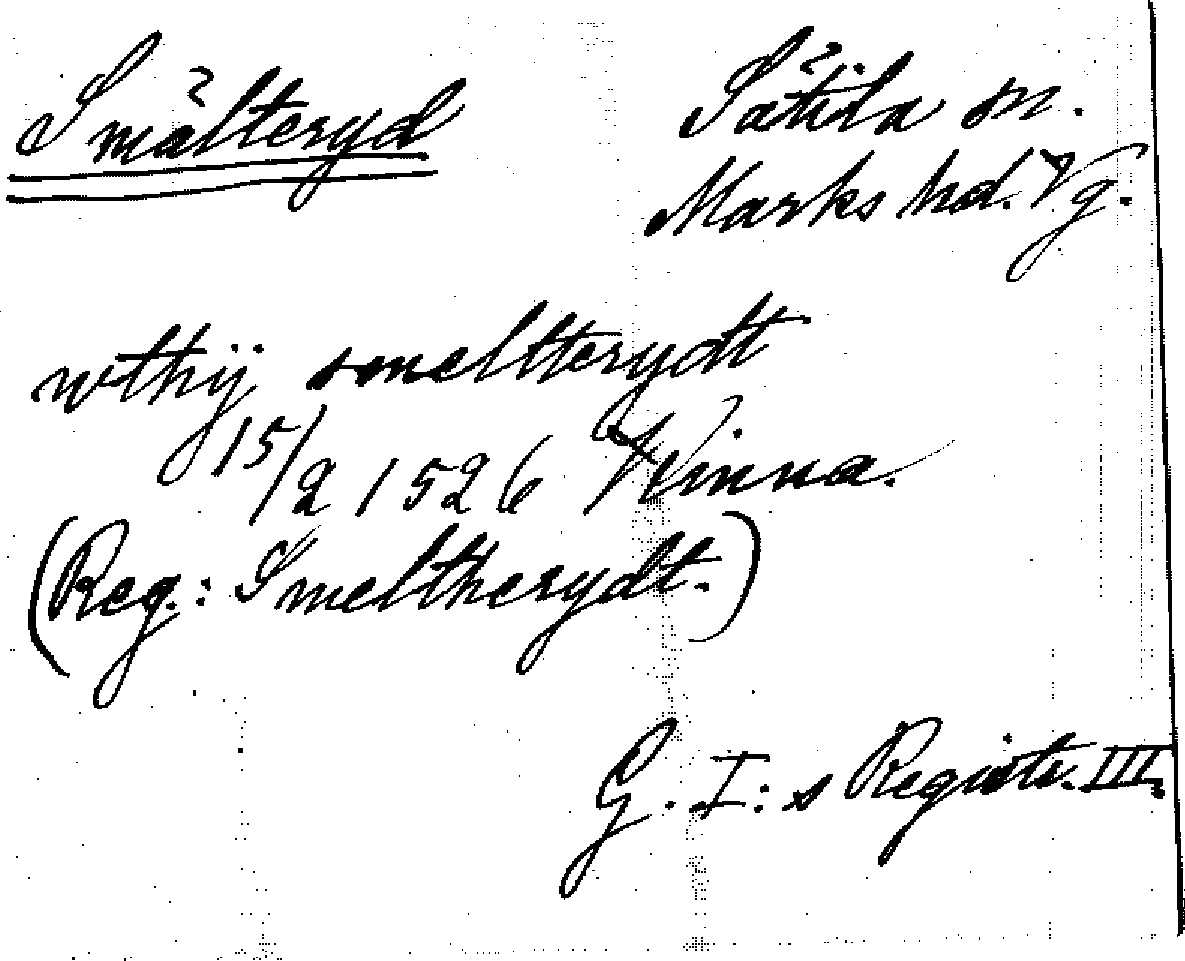 Smälteryd
Sätila sn.
Marks hd. Vg.
wthÿ smeltterydt
15/2 1526 Kinna.
(Reg.: Smeltherydt.)
G. I:s Registr. III.